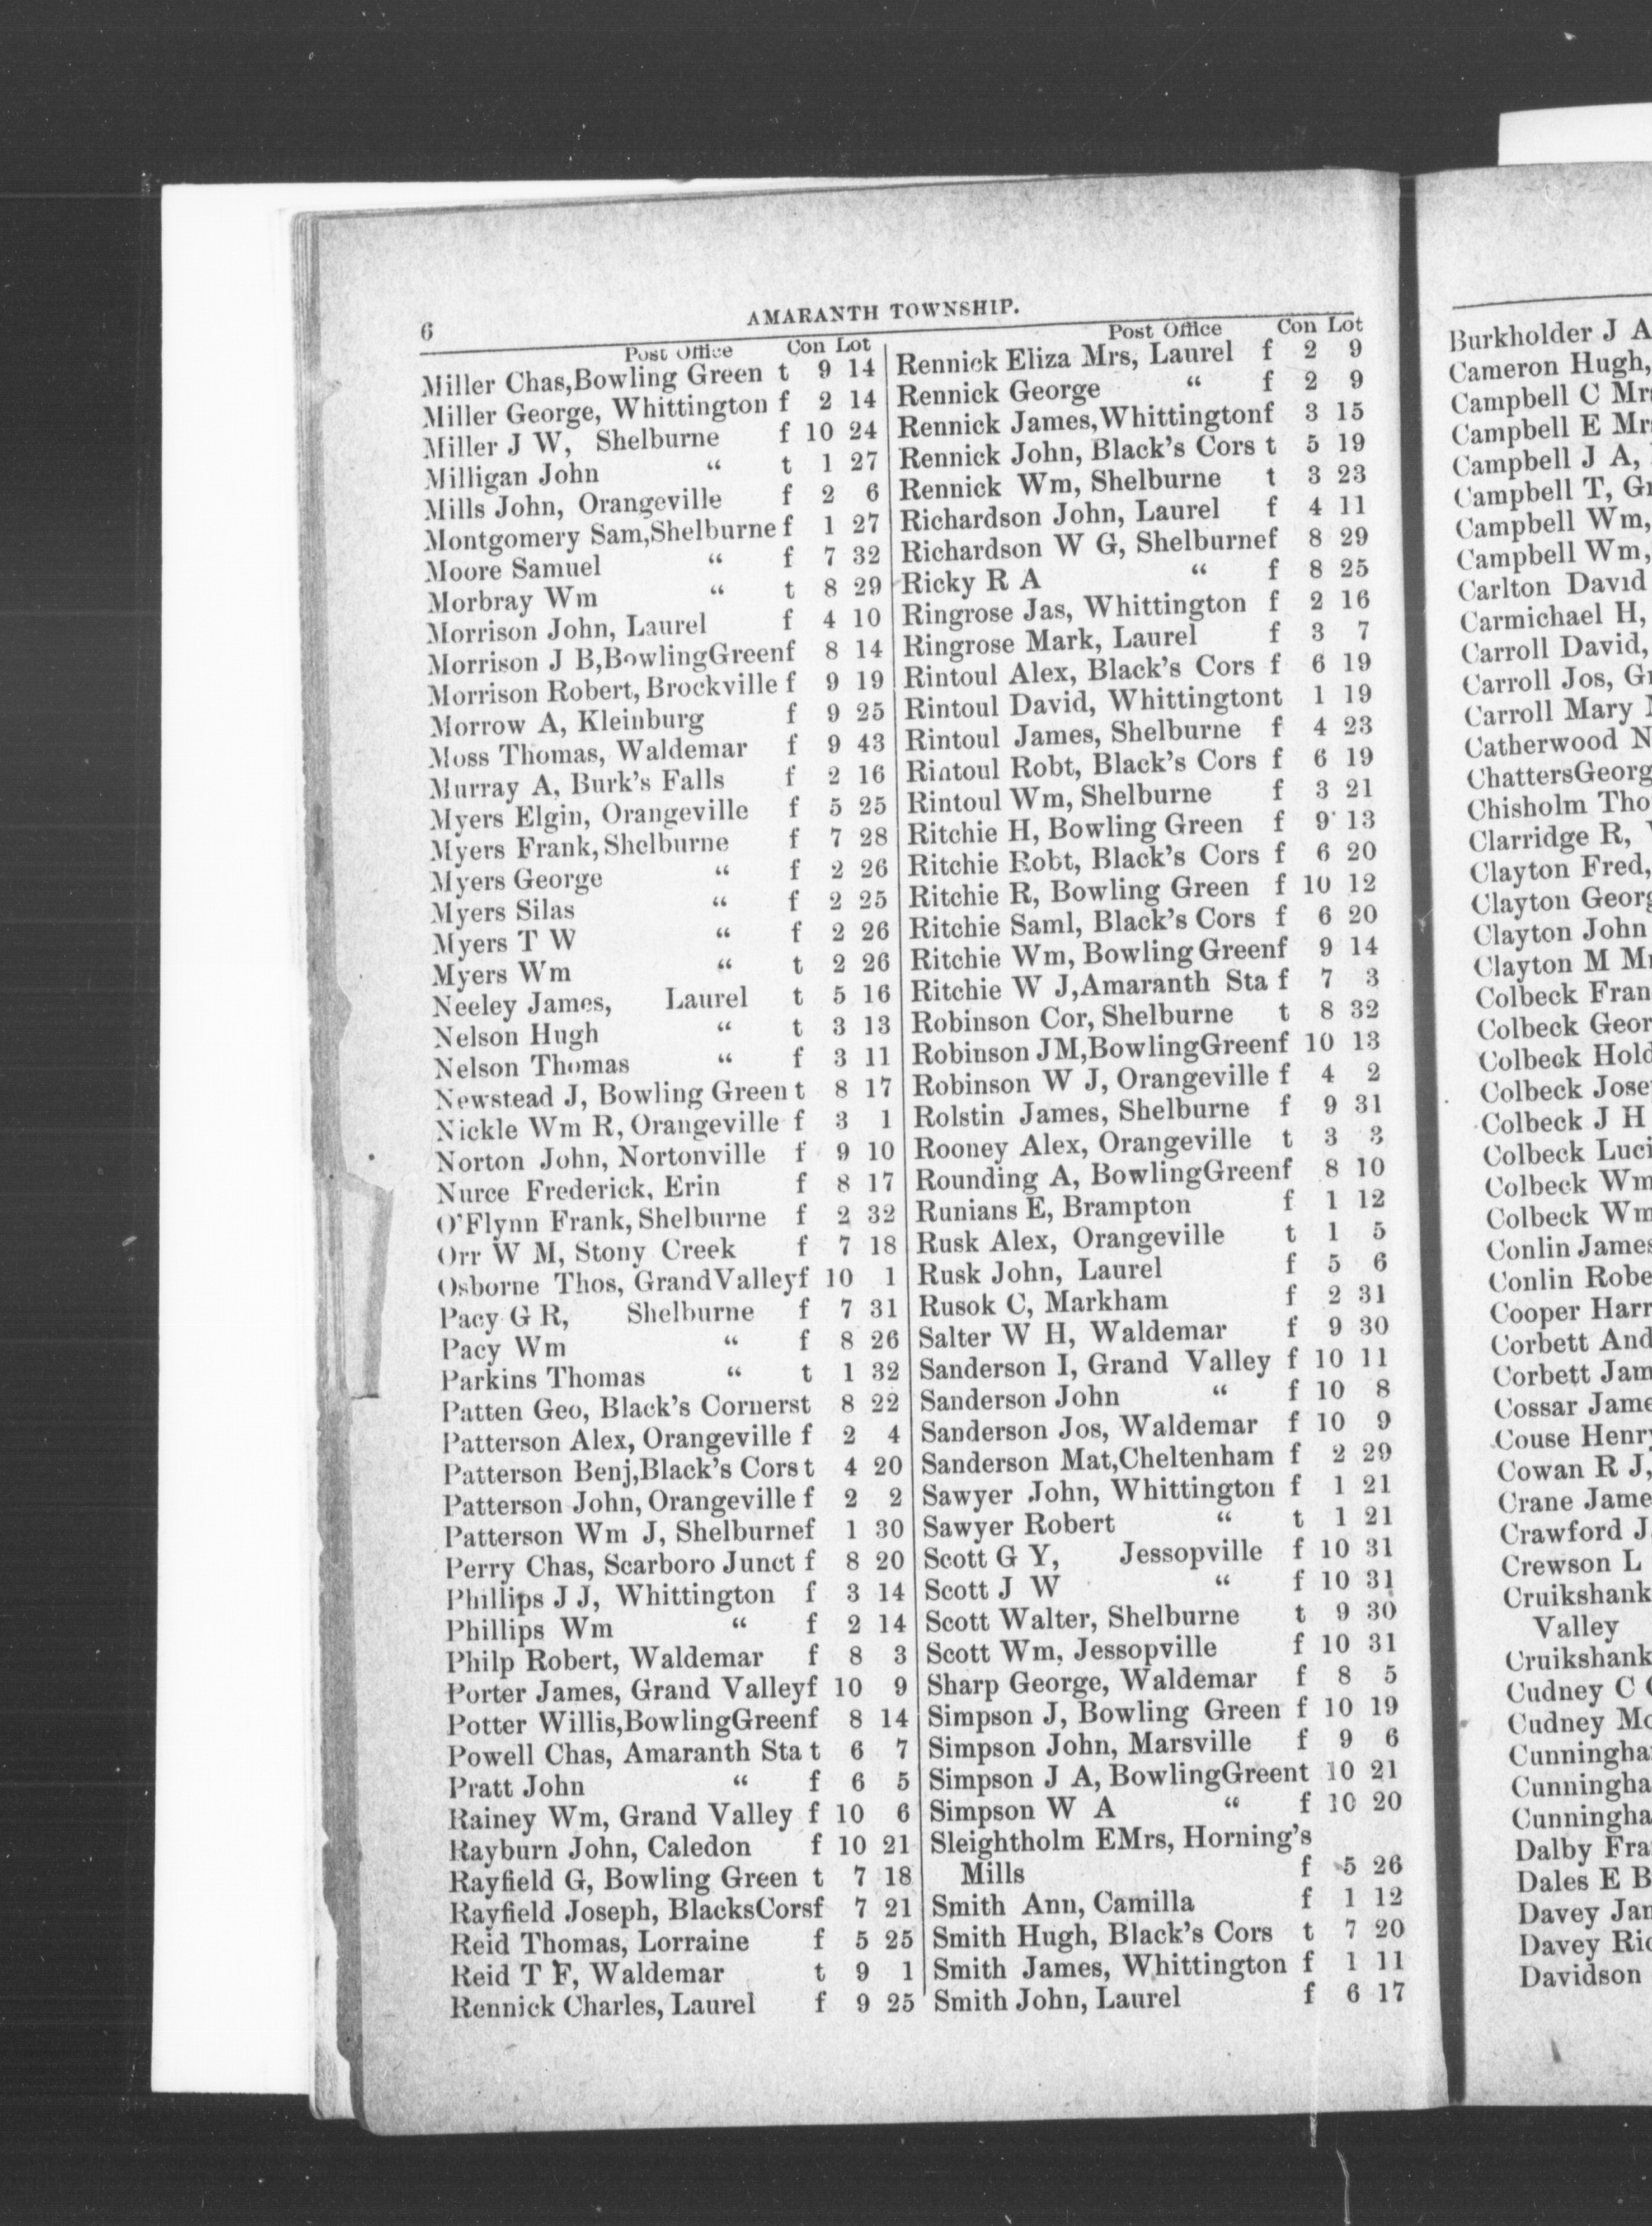 6
AMARANTH TOWNSHIP.
Post Office Con Lot
Miller Chas,Bowling Green t 9 14
Miller George, Whittington f 2 14
Miller J W, Shelburne f 10 24
Milligan John “ t 1 27
Mills John, Orangeville f 2 6
Montgomery Sam,Shelburne f 1 27
Moore Samuel “ f 7 32
Morbray Wm “ t 8 29
Morrison John, Laurel f 4 10
Morrison J B,BowlingGreenf 8 14
Morrison Robert, Brockville f 9 19
Morrow A, Kleinburg f 9 25
Moss Thomas, Waldemar f 9 43
Murray A, Burk's Falls f 2 16
Myers Elgin, Orangeville f 5 25
Myers Frank, Shelburne f 7 28
Myers George “ f 2 26
Myers Silas “ f 2 25
Myers T W “ f 2 26
Myers Wm “ t 2 26
Neeley James, Laurel t 5 16
Nelson Hugh “ t 3 13
Nelson Thomas “ f 3 11
Newstead J, Bowling Green t 8 17
Nickle Wm R, Orangeville f 3 1
Norton John, Nortonville f 9 10
Nurce Frederick, Erin f 8 17
O'Flynn Frank, Shelburne f 2 32
Orr W M, Stony Creek f 7 18
Osborne Thos, GrandValleyf 10 1
Pacy G R, Shelburne f 7 31
Pacy Wm “ f 8 26
Parkins Thomas “ t 1 32
Patten Geo, Black's Cornerst 8 22
Patterson Alex, Orangeville f 2 4
Patterson Benj,Black's Cors t 4 20
Patterson John, Orangeville f 2 2
Patterson Wm J, Shelburnef 1 30
Perry Chas, Scarboro Junct f 8 20
Phillips J J, Whittington f 3 14
Phillips Wm “ f 2 14
Philp Robert, Waldemar f 8 3
Porter James, Grand Valleyf 10 9
Potter Willis,BowlingGreenf 8 14
Powell Chas, Amaranth Sta t 6 7
Pratt John “ f 6 5
Rainey Wm, Grand Valley f 10 6
Rayburn John, Caledon f 10 21
Rayfield G, Bowling Green t 7 18
Rayfield Joseph, BlacksCorsf 7 21
Reid Thomas, Lorraine f 5 25
Reid T F, Waldemar t 9 1
Rennick Charles, Laurel f 9 25
Post Office Con Lot
Rennick Eliza Mrs, Laurel f 2 9
Rennick George “ f 2 9
Rennick James,Whittingtonf 3 15
Rennick John, Black's Cors t 5 19
Rennick Wm, Shelburne t 3 23
Richardson John, Laurel f 4 11
Richardson W G, Shelburnef 8 29
Ricky R A “ f 8 25
Ringrose Jas, Whittington f 2 16
Ringrose Mark, Laurel f 3 7
Rintoul Alex, Black's Cors f 6 19
Rintoul David, Whittingtont 1 19
Rintoul James, Shelburne f 4 23
Rintoul Robt, Black's Cors f 6 19
Rintoul Wm, Shelburne f 3 21
Ritchie H, Bowling Green f 9 13
Ritchie Robt, Black's Cors f 6 20
Ritchie R, Bowling Green f 10 12
Ritchie Saml, Black's Cors f 6 20
Ritchie Wm, Bowling Greenf 9 14
Ritchie W J,Amaranth Sta f 7 3
Robinson Cor, Shelburne t 8 32
Robinson JM,BowlingGreenf 10 13
Robinson W J, Orangeville f 4 2
Rolstin James, Shelburne f 9 31
Rooney Alex, Orangeville t 3 3
Rounding A, BowlingGreenf 8 10
Runians E, Brampton f 1 12
Rusk Alex, Orangeville t 1 5
Rusk John, Laurel f 5 6
Rusok C, Markham f 2 31
Salter W H, Waldemar f 9 30
Sanderson I, Grand Valley f 10 11
Sanderson John “ f 10 8
Sanderson Jos, Waldemar f 10 9
Sanderson Mat,Cheltenham f 2 29
Sawyer John, Whittington f 1 21
Sawyer Robert “ t 1 21
Scott G Y, Jessopville f 10 31
Scott J W “ f 10 31
Scott Walter, Shelburne t 9 30
Scott Wm, Jessopville f 10 31
Sharp George, Waldemar f 8 5
Simpson J, Bowling Green f 10 19
Simpson John, Marsville f 9 6
Simpson J A, BowlingGreent 10 21
Simpson W A “ f 10 20
Sleightholm EMrs, Horning's
Mills f 5 26
Smith Ann, Camilla f 1 12
Smith Hugh, Black's Cors t 7 20
Smith James, Whittington f 1 11
Smith John, Laurel f 6 17
Burkholder J A
Cameron Hugh,
Campbell C
Campbell E
Campbell J A,
Campbell T,
Campbell Wm,
Campbell Wm,
Carlton David
Carmichael H,
Carroll David,
Carroll Jos,
Carroll Mary
Catherwood N
Chatters
Chisholm
Clarridge R,
Clayton Fred,
Clayton
Clayton John
Clayton M
Colbeck
Colbeck
Colbeck
Colbeck
Colbeck J H
Colbeck
Colbeck Wm
Colbeck Wm
Conlin
Conlin
Cooper
Corbett
Corbett
Cossar
Couse
Cowan R J,
Crane
Crawford J
Crewson L
Cruikshank
Valley
Cruikshank
Cudney C
Cudney
Dalby
Dales E
Davey
Davey
Davidson